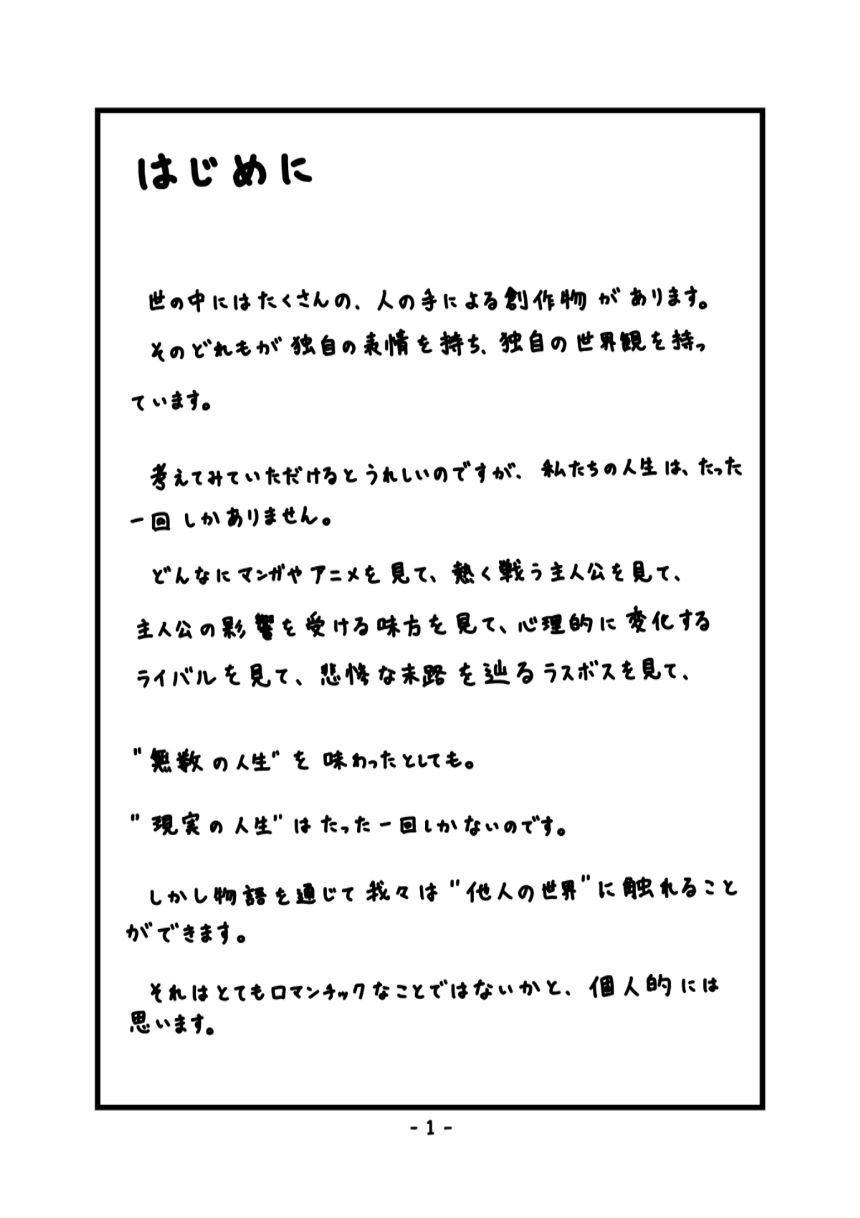 はじめに
世の中にはたくさんの、人の手による創作物があります。
そのどれもが独自の表情を持ち、独自の世界観を持っ
ています。
考えてみていただけるとうれしいのですが、私たちの人生は、たった
一回しかありません。
どんなにマンガやアニメを見て、熱く戦う主人公を見て、
主人公の影響を受ける味方を見て、心理的に変化する
ライバルを見て、悲惨な末路を辿るラスボスを見て、
"無数の人生"を味わったとしても。
"現実の人生"はたった一回しかないのです。
しかし物語を通じて我々は"他人の世界"に触れること
ができます。
それはとてもロマンチックなことではないかと、個人的には
思います。
- 1 -